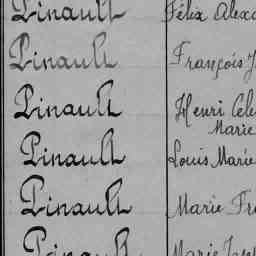 Pinault Félix
Pinault François
Pinault Henri
Marie
Pinault Louis Marie
Pinault Marie
Pinault Marie